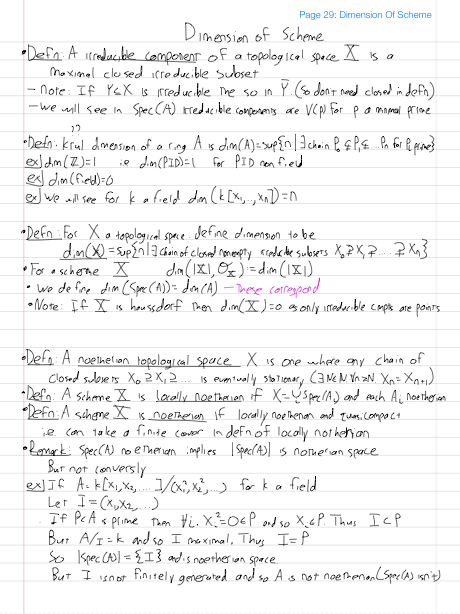 Page 29: Dimension Of Scheme
Dimension of Scheme
• Defn: A irreducible component of a topological space X is a
maximal closed irreducible subset
- note: If Y⊆X is irreducible the so in Ȳ. (so don't need closed in defn)
- we will see in Spec(A) irreducible components are V(p) for p a minimal prime
??
• Defn: krul dimension of a ring A is dim(A)=sup{n | ∃ chain P₀ ⊊ P₁ ⊊ ... Pn for Pi prime}
ex) dim(ℤ)=1 ie dim(PID)=1 for PID non field
ex) dim(field)=0
ex) we will see for k a field dim(k[x₁,..,xn])=n
• Defn: For X a topological space define dimension to be
dim(X)=sup{n | ∃ chain of closed nonempty irreducible subsets X₀ ⊋ X₁ ⊋ .... ⊋ Xn}
• For a scheme X dim(|X|, O_X) := dim(|X|)
• We define dim(Spec(A)) = dim(A) - these correspond
• Note: If X is haussdorf then dim(X)=0 as only irreducible cmpts are points
• Defn: A noetherian topological space X is one where any chain of
closed subsets X₀ ⊇ X₁ ⊇ ... is eventually stationary (∃N∈ℕ ∀n≥N Xn = Xn+1)
• Defn: A scheme X is locally noetherian if X=∪Spec(Ai) and each Ai noetherian
• Defn: A scheme X is noetherian if locally noetherian and quasicompact
i.e. can take a finite cover in defn of locally notherian
• Remark: Spec(A) noetherian implies |Spec(A)| is notherian space
But not conversly
ex) If A=k[x₁,x₂,....]/(x₁²,x₂²,...) for k a field
Let I=(x₁,x₂,...)
If P⊂A is prime then ∀i, xi²=0∈P and so xi∈P. Thus I⊂P
But A/I=k and so I maximal, Thus I=P
So |Spec(A)|={I} and is noetherian space
But I is not finitely generated and so A is not noetherian (Spec(A) isn't)